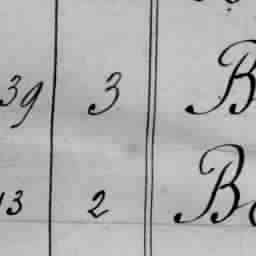 39 3 B
13 2 Be